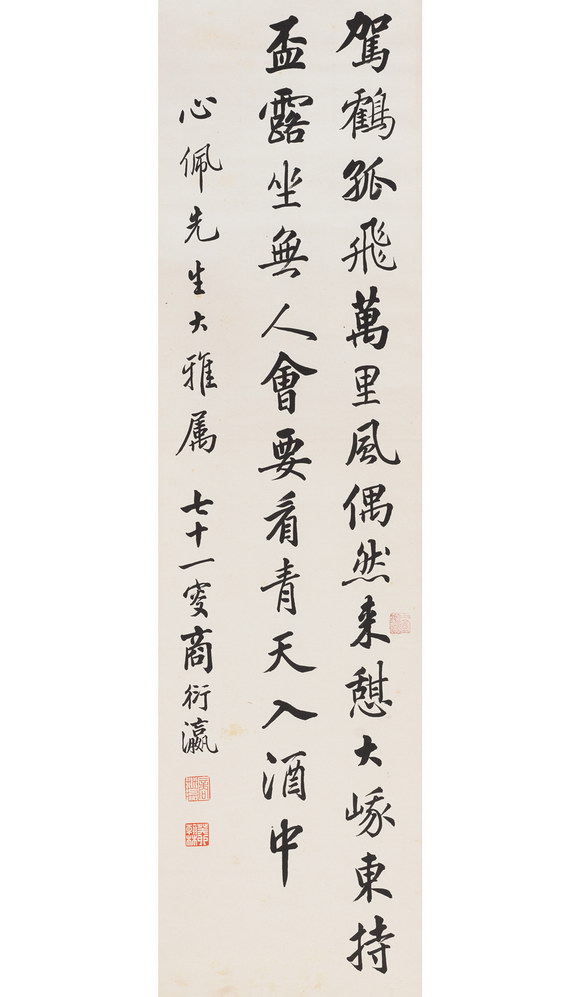 駕鶴孤飛萬里風偶然来憩大峩東持
盃露坐無人會要看青天入酒中
心佩先生大雅属 七十一叟商衍瀛